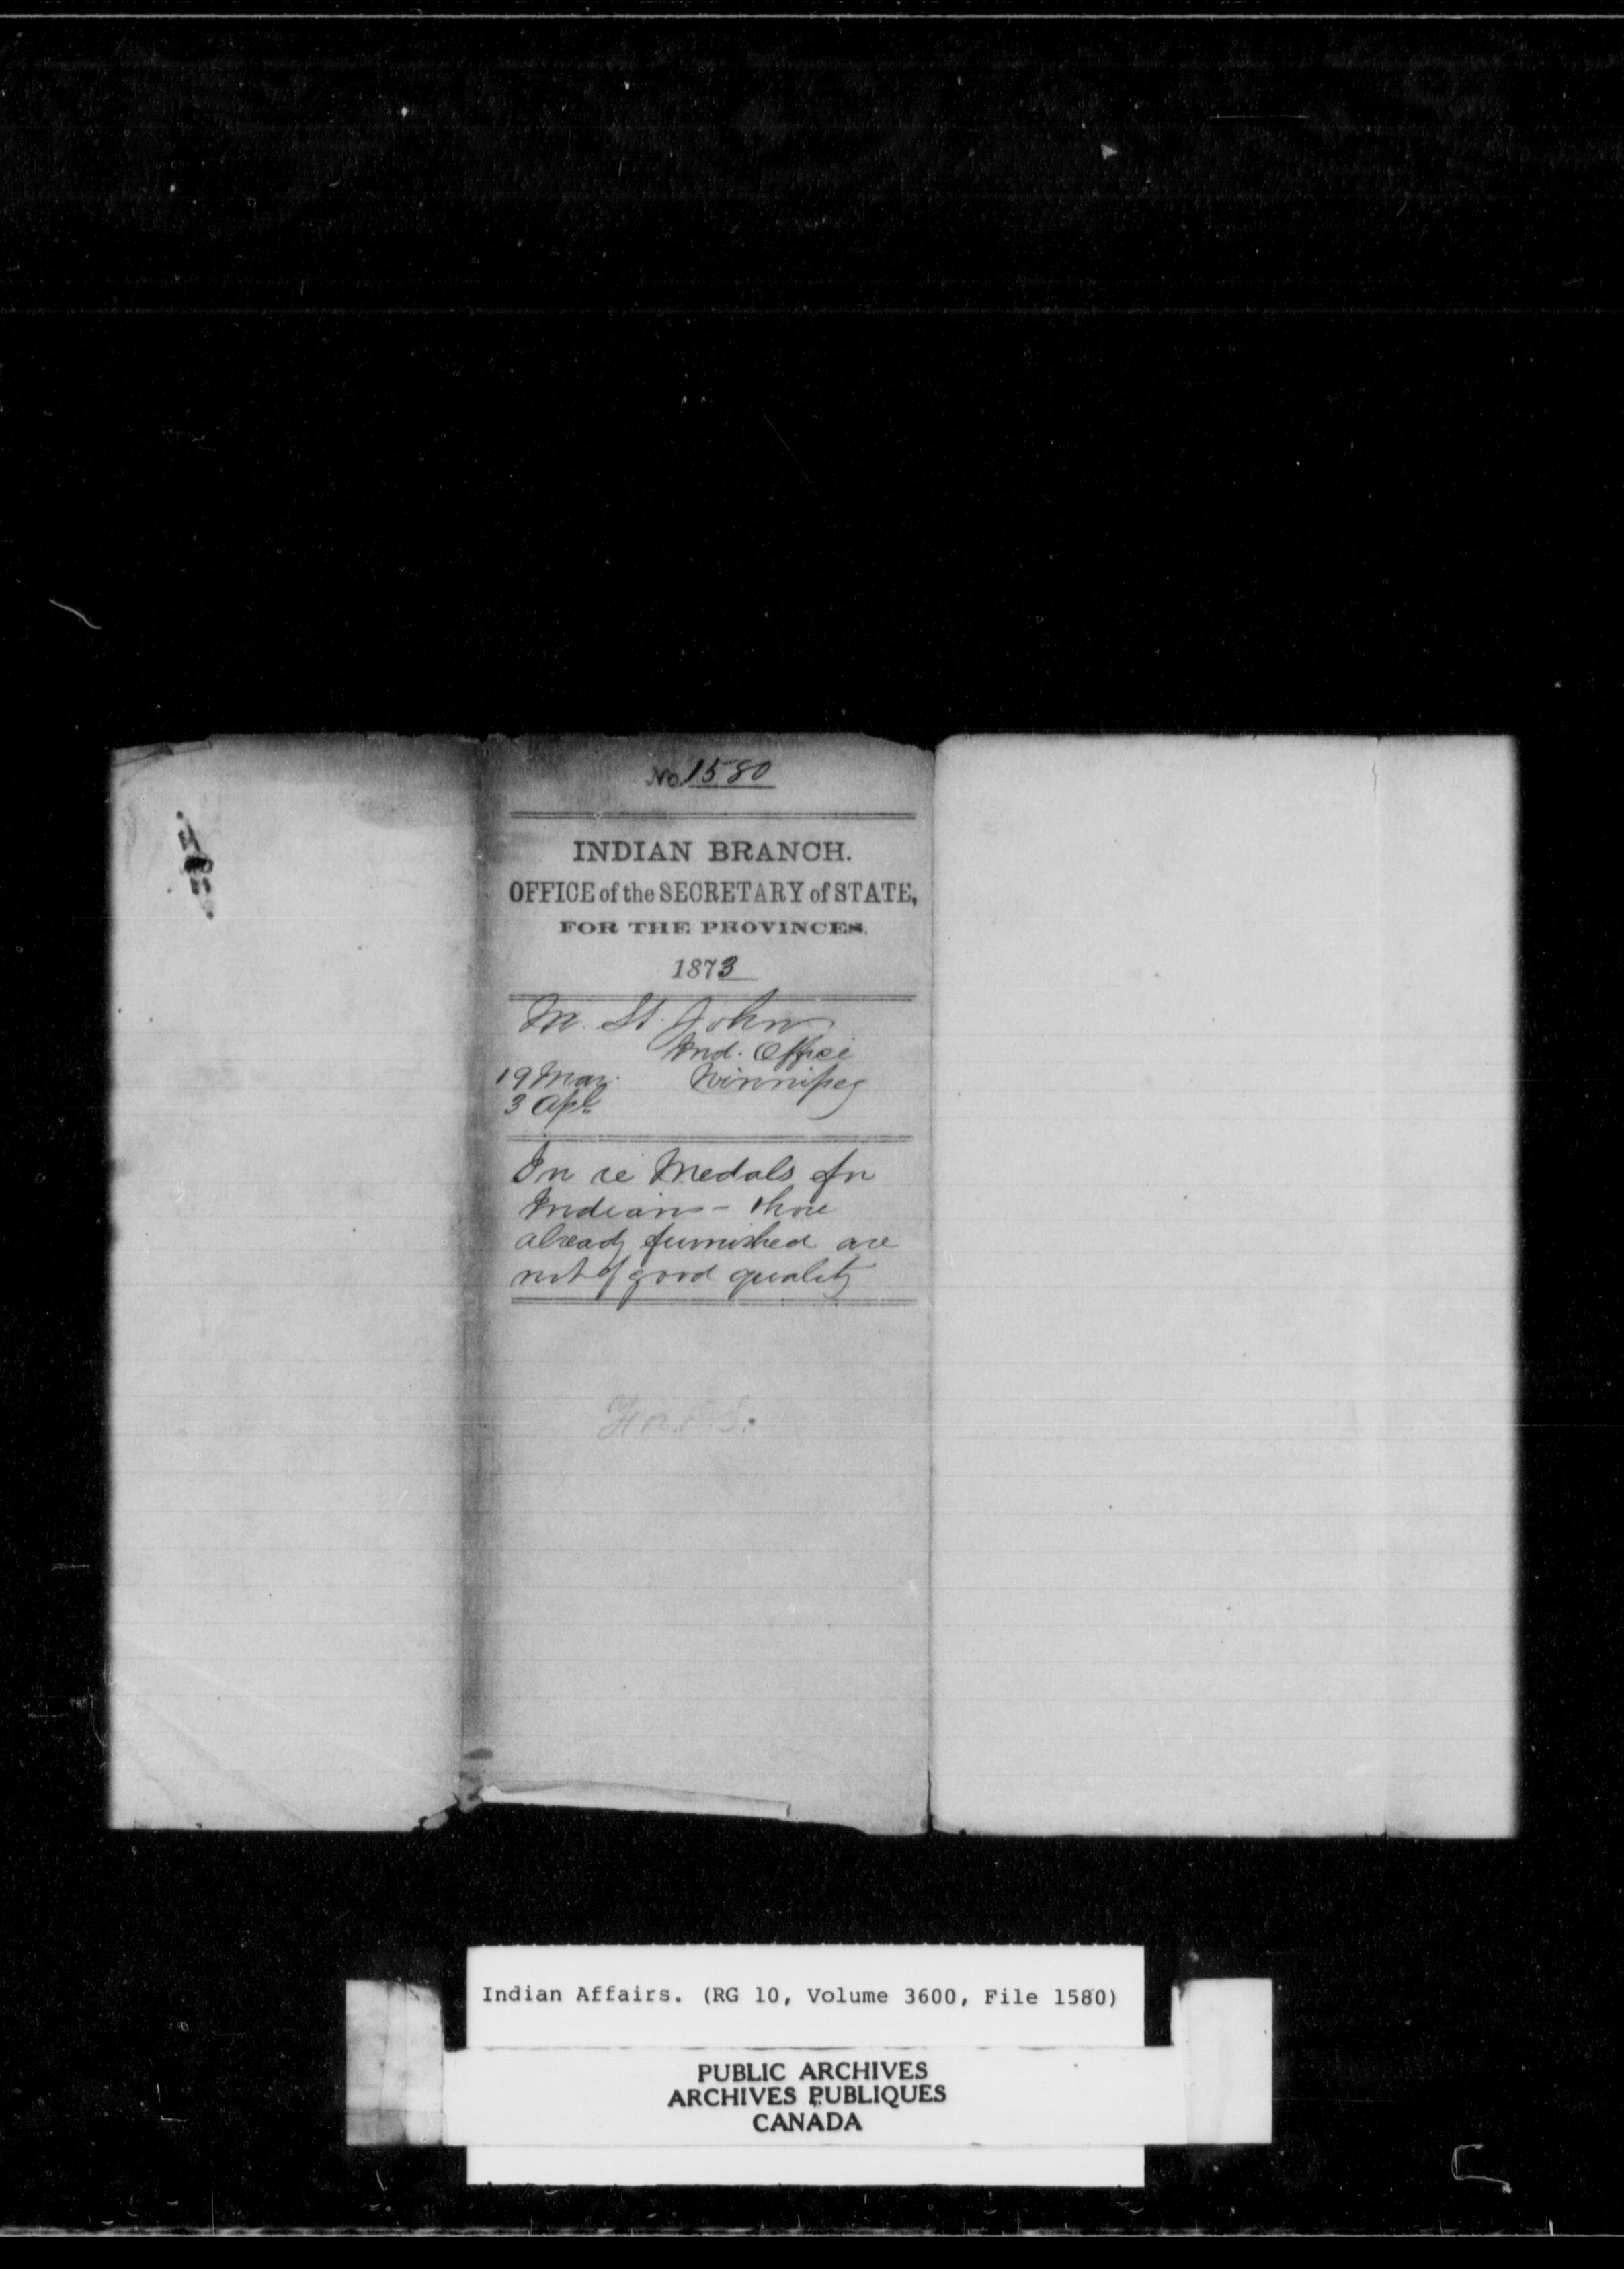 No 1580
INDIAN BRANCH.
OFFICE of the SECRETARY of STATE,
FOR THE PROVINCES.
1873
M. St. John
Ind. Office
19 Mar. Winnipeg
3 Apl.
In re Medals for
Indians - those
already furnished are
not of good quality
Indian Affairs. (RG 10, Volume 3600, File 1580)
PUBLIC ARCHIVES
ARCHIVES PUBLIQUES
CANADA